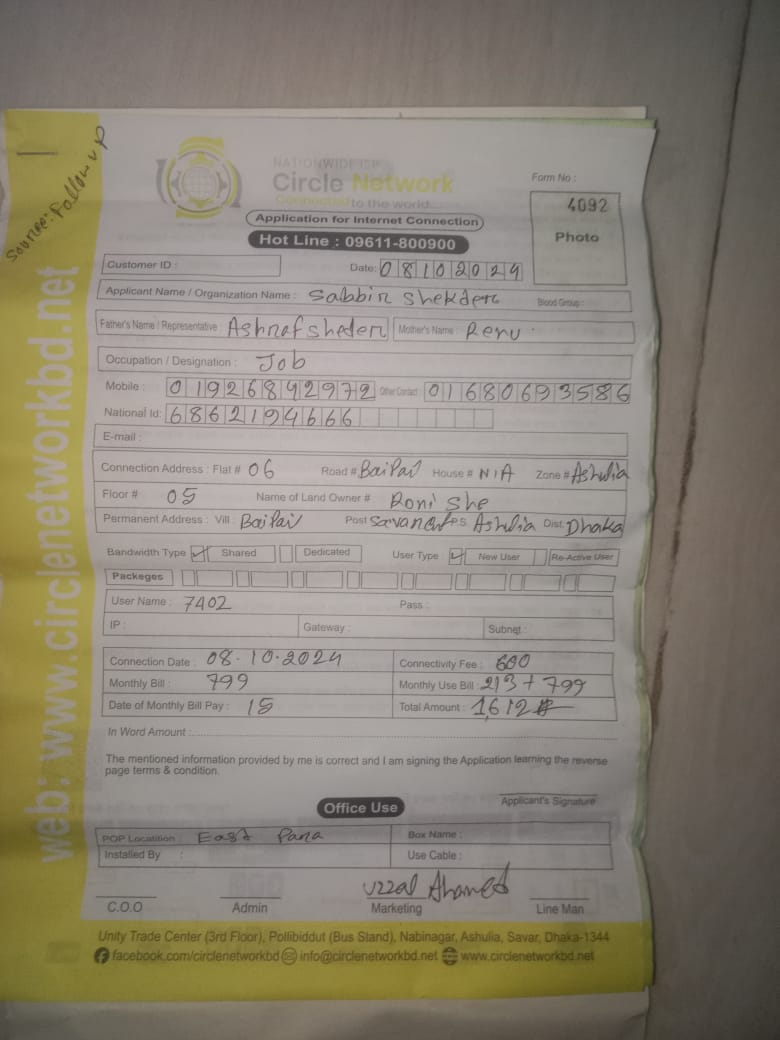 Source: Follow up
web: www.circlenetworkbd.net
NATIONWIDE ISP
Circle Network
Connected to the world...
Form No :
4092
Photo
Application for Internet Connection
Hot Line : 09611-800900
Customer ID :
Date: 08102024
Applicant Name / Organization Name : Sabbir Shekder Blood Group :
Father's Name / Representative : Ashraf sheder Mother's Name : Renu
Occupation / Designation : Job
Mobile : 01926842972 Other Contact : 01680693586
National Id: 6862194666
E-mail :
Connection Address : Flat # 06 Road # BaiPail House # N/A Zone # Ashulia
Floor # 05 Name of Land Owner # Roni She
Permanent Address : Vill : BaiPail Post PS Ashulia Dist: Dhaka
Bandwidth Type Shared Dedicated User Type : New User Re-Active User
Packeges
User Name : 7402 Pass :
IP : Gateway : Subnet :
Connection Date : 08.10.2024 Connectivity Fee : 600
Monthly Bill : 799 Monthly Use Bill : 213 + 799
Date of Monthly Bill Pay : 15 Total Amount : 1,612
In Word Amount :
The mentioned information provided by me is correct and I am signing the Application learning the reverse
page terms & condition.
Applicant's Signature
Office Use
POP Locatition : East Para Box Name :
Installed By : Use Cable :
Uzzal Ahamed
C.O.O Admin Marketing Line Man
Unity Trade Center (3rd Floor), Pollibiddut (Bus Stand), Nabinagar, Ashulia, Savar, Dhaka-1344
facebook.com/circlenetworkbd info@circlenetworkbd.net www.circlenetworkbd.net